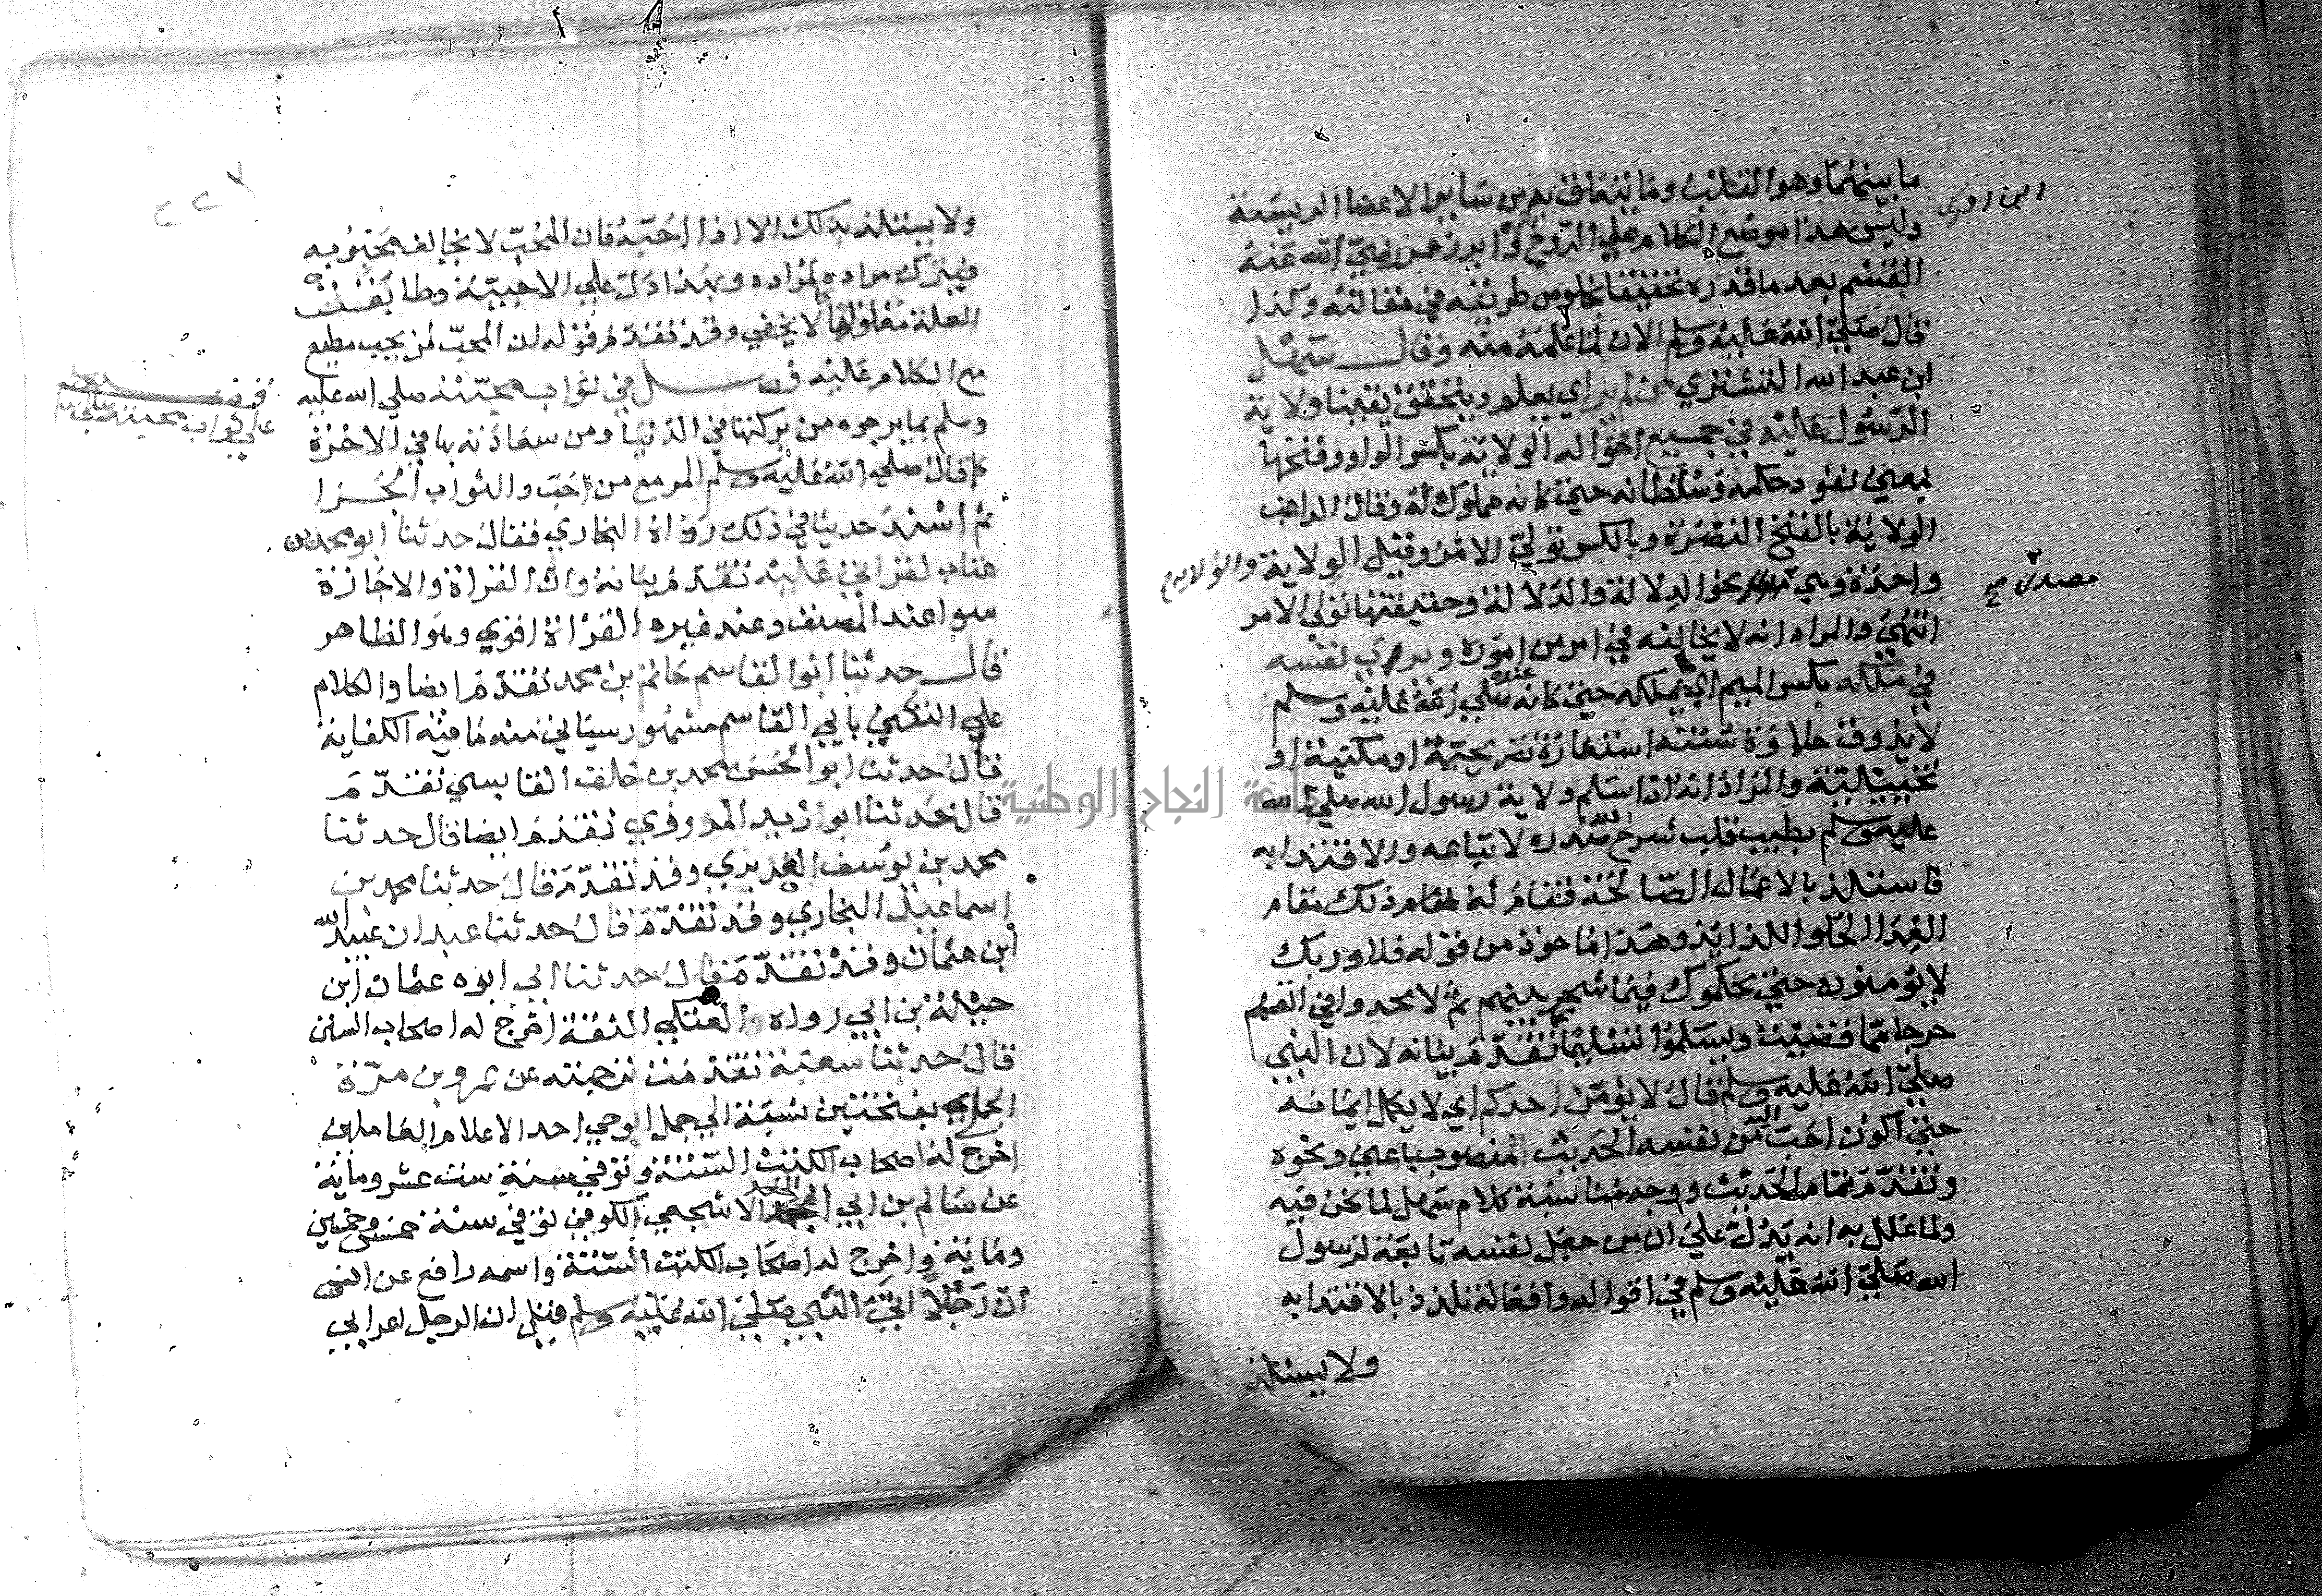 ما بينهما وهو القلب وما يتعلق به من سائر الاعضا الرييسة
وليس هذا موضع الكلام علي الروح وابرز عمر رضي الله عنه
القسم بعد ما قدره تحقيقا في مقالته ولذا
قال صلي الله عليه وسلم الان لما علمه منه وقال سهل
ابن عبد الله التستري من لم ير اي يعلم ويتحقق يقينا ولاية
الرسول عليه في جميع احواله الولاية بكسر الواو وفتحها
بمعني نفوذ حكمه وسلطانه حتي كانه مملوك له وقال الراغب
الولاية بالفتح النصرة وبالكسر تولي الامر وقيل الولاية والولاية
واحدة وهي نحو الدلالة والدلالة وحقيقتها تولي الامر
انتهي والمراد انه لا يخالفه في امر من اموره ويري نفسه
في ملكه بكسر الميم اي يملكه حتي كانه عنده صلي الله عليه وسلم
لا يذوق حلاوة سنته استعارة تصريحية او مكنية او
تخييلية والمراد انه اذا سلم ولاية رسول الله صلي الله
عليه وسلم بطيب قلب شرح الله صدره لاتباعه والاقتدا به
فاستلذ بالاعمال الصالحة فقام له ذلك مقام
الغذا الحلو اللذايذ وهذا ماخوذ من قوله فلا وربك
لا يومنون حتي يحكموك فيما شجر بينهم ثم لا يجدوا في انفسهم
حرجا مما قضيت ويسلموا تسليما تقدم بيانه لان النبي
صلي الله عليه وسلم قال لا يؤمن احدكم اي لا يكمل ايمانه
حتي اكون احب اليه من نفسه الحديث المنصوب باعني ونحوه
وتقدم تمام الحديث ووجه مناسبة كلام سهل لما نحن فيه
ولما علل به انه يدل علي ان من جعل نفسه تابعة لرسول
الله صلي الله عليه وسلم في اقواله وافعاله تلذذ بالاقتدا به
ولا يستلذ
ولا يستلذ بذلك الا اذا احبه فان المحب لا يخالف محبوبه
فيترك مراده لمراده وبهذا دل علي الاحبية
العلة معلولها لا يخفي وقد تقدم قوله ان المحب لمن يحب مطيع
مع الكلام عليه فصل في ثواب محبته صلي الله عليه
وسلم بما يرجوه من بركتها في الدنيا ومن سعادته بها في الاخرة
كما قال صلي الله عليه وسلم المرء مع من احب والثواب الجزا
ثم اسند حديثا في ذلك رواه البخاري فقال حدثنا ابو محمد بن
عتاب لقراتي عليه تقدم بيانه وان القراة والاجازة
سوا عند المصنف وعند غيره القراة اقوي وهو الظاهر
قال حدثنا ابو القاسم حاتم بن محمد تقدم ايضا والكلام
علي التكني بابي القاسم مشهور سياتي منه ما فيه الكفاية
قال حدثنا ابو الحسن محمد بن خلف القابسي تقدم
قال حدثنا ابو زيد المروزي تقدم ايضا قال حدثنا
محمد بن يوسف الفربري وقد تقدم قال حدثنا محمد بن
اسماعيل البخاري وقد تقدم قال حدثنا عبدان عبد الله
ابن عثمان وقد تقدم قال حدثنا ابي ابوه عثمان ابن
جبلة بن ابي رواد العتكي الثقة اخرج له اصحاب السنن
قال حدثنا شعبة تقدمت ترجمته عن عمرو بن مرة
الجملي بفتحتين نسبة الي جمل احد الاعلام العاملين
اخرج له اصحاب الكتب الستة وتوفي سنة ست عشر وماية
عن سالم بن ابي الجعد الاشجعي الكوفي توفي سنة
وماية واخرج له اصحاب الكتب الستة واسمه رافع عن انس
ان رجلا اتي النبي صلي الله عليه وسلم قيل ان الرجل اعرابي